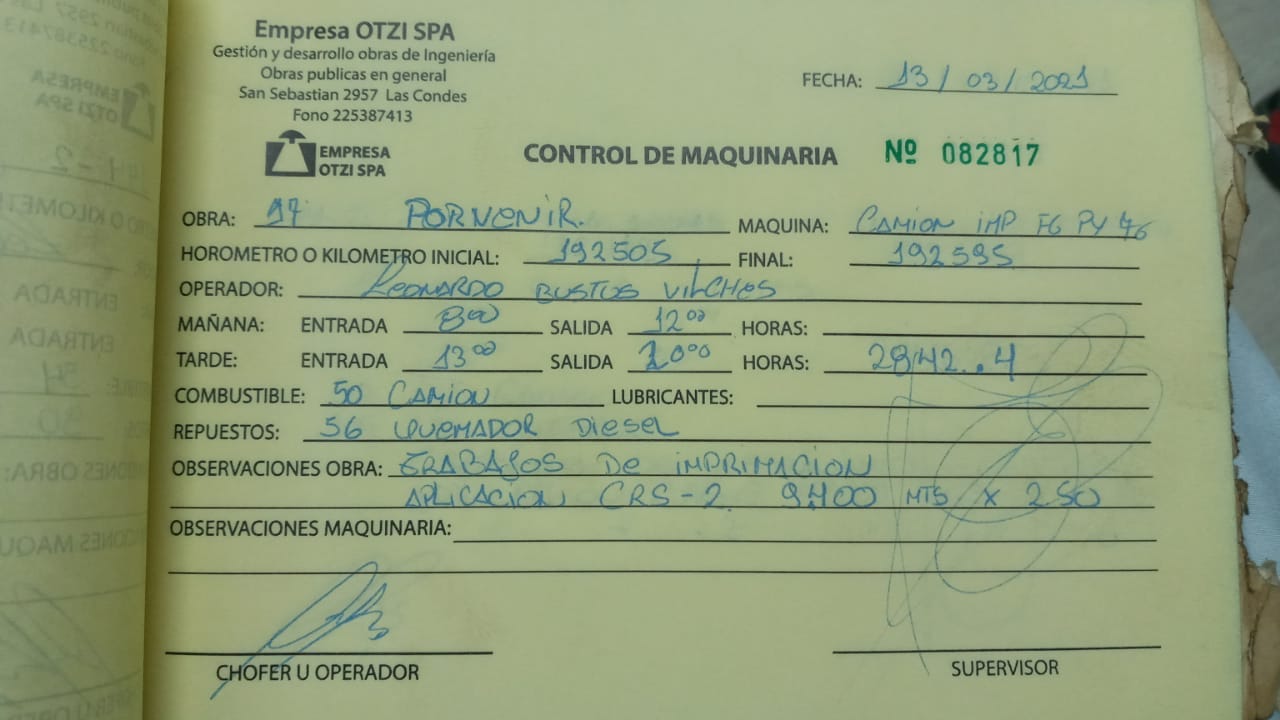 Empresa OTZI SPA
Gestión y desarrollo obras de Ingeniería
Obras publicas en general
San Sebastian 2957 Las Condes
Fono 225387413
FECHA: 13 / 03 / 2021
EMPRESA
OTZI SPA
CONTROL DE MAQUINARIA Nº 082817
OBRA: 97 PORVENIR. MAQUINA: CAMION IMP FG PY 76
HOROMETRO O KILOMETRO INICIAL: 192505 FINAL: 192595
OPERADOR: LEONARDO BUSTOS VILCHES
MAÑANA: ENTRADA 800 SALIDA 1200 HORAS:
TARDE: ENTRADA 1300 SALIDA 2000 HORAS: 2842..4
COMBUSTIBLE: 50 CAMION LUBRICANTES:
REPUESTOS: 56 QUEMADOR DIESEL
OBSERVACIONES OBRA: TRABAJOS DE IMPRIMACION
APLICACION CRS-2 9.400 MTS X 2.50
OBSERVACIONES MAQUINARIA:
CHOFER U OPERADOR
SUPERVISOR